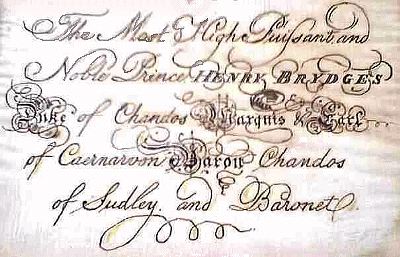 The Most High Puissant and
Noble Prince HENRY BRYDGES
Duke of Chandos Marquis & Earl
of Caernarvon Baron Chandos
of Sudley. and Baronet.